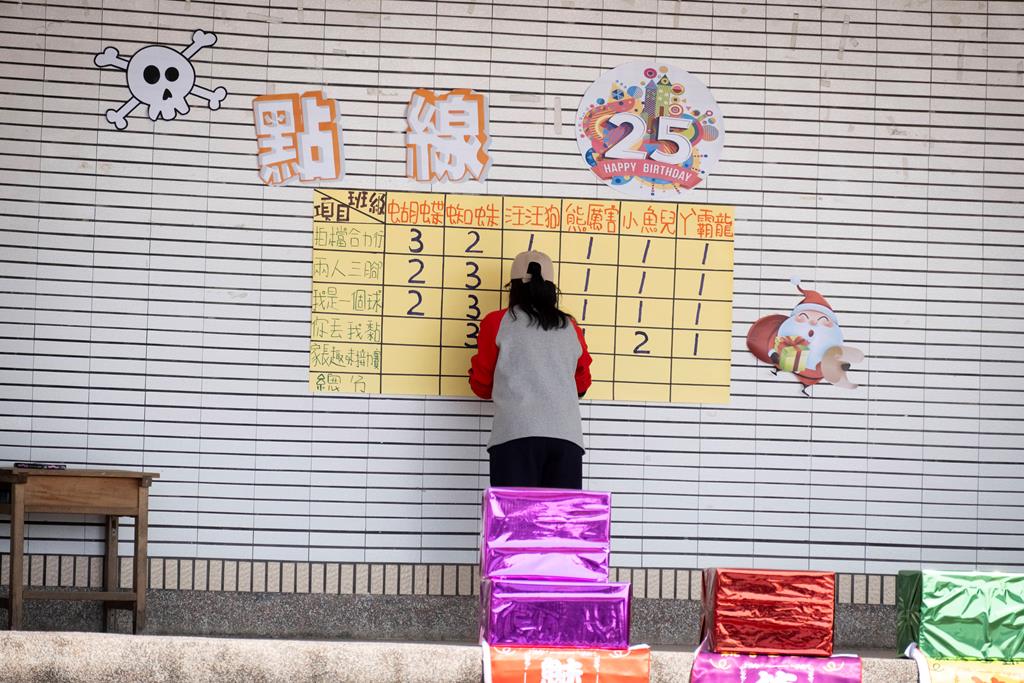 點線
25
HAPPY BIRTHDAY
項目 班級 蝴蝶 蜘蛛 汪汪狗 熊厲害 小魚兒 丫霸龍
拍檔合力行 3 2 1 1 1 1
兩人三腳 2 3 1 1 1
我是一個球 2 3 1 1 1
你丟我黏 3 2 1
家長趣味接力賽
總分